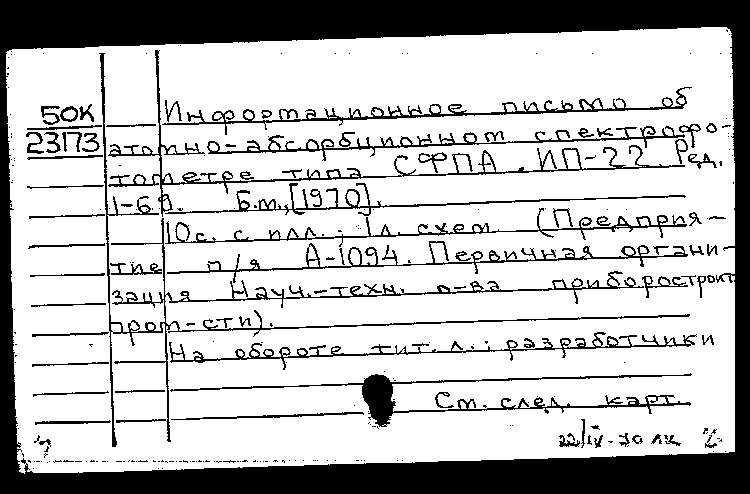 БОК
23173
Информационное письмо об
атомно-абсорбционном спектрофо-
тометре типа СФПА. ИП-22. Ред.
1-69. Б.м., [1970].
10с. с илл.; 1л. схем (Предприя-
тие п/я А-1094. Первичная органи-
зация Науч.-техн. о-ва приборостроит
пром-сти).
На обороте тит. л.: разработчики
См. след. карт.
22/IV-70 лк